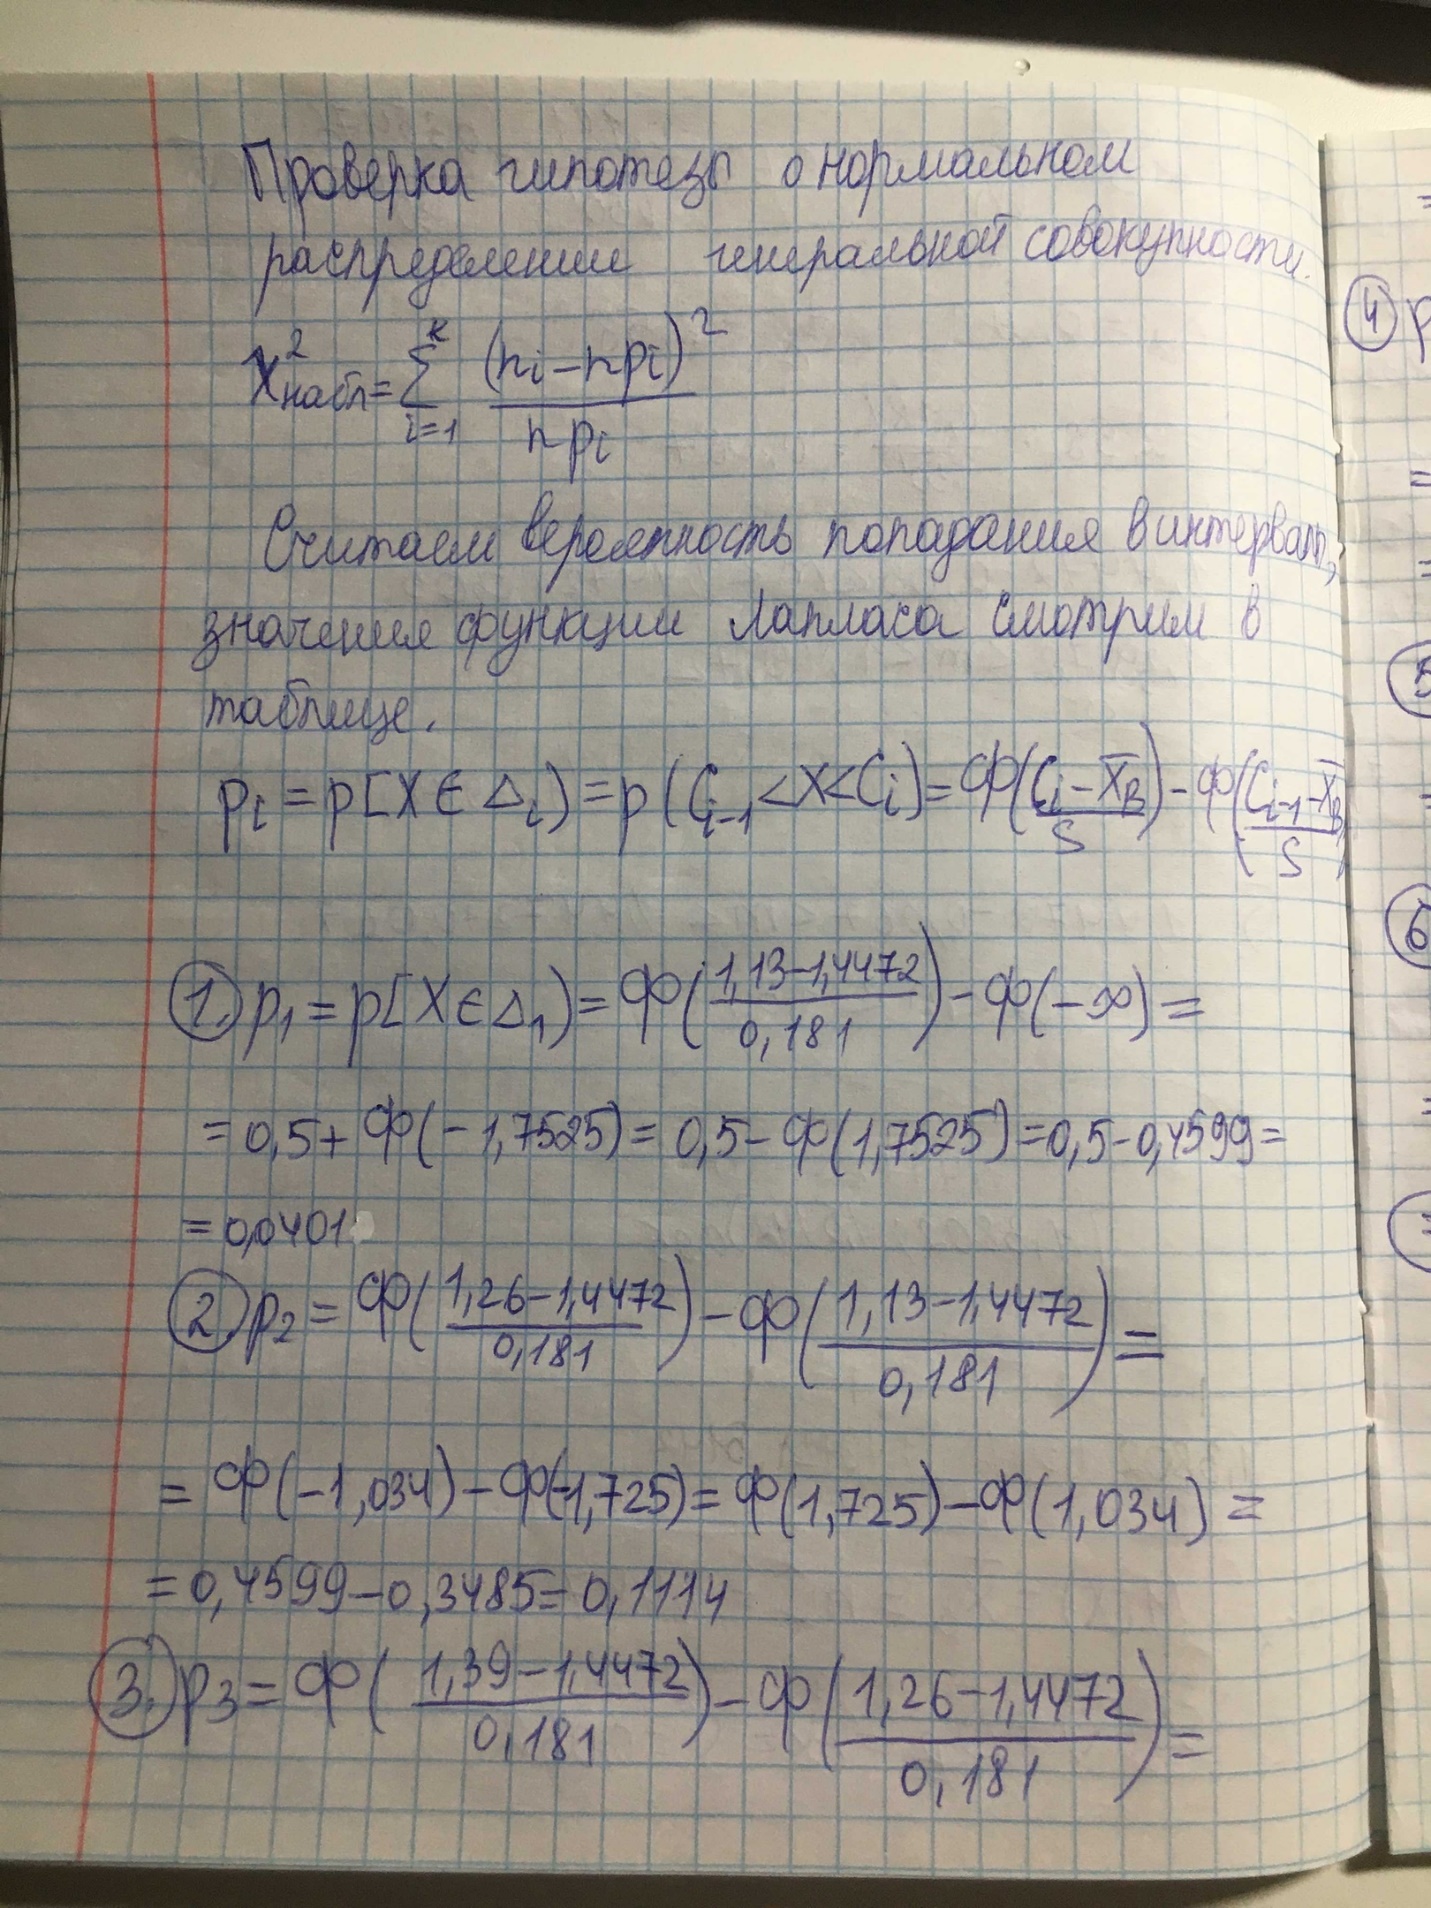 Проверка гипотезы о нормальном
распределении генеральной совокупности.
χ²набл = Σ_{i=1}^{k} (ni – npi)² / npi
Считаем вероятность попадания в интервал,
значения функции Лапласа смотрим в
таблице.
pi = p[X ∈ Δi) = p(Ci-1 < X < Ci) = Ф((Ci – X̅в)/S) – Ф((Ci-1 – X̅в)/S)
1. p1 = p[X ∈ Δ1) = Ф((1,13 – 1,4472)/0,181) – Ф(–∞) =
= 0,5 + Ф(–1,7525) = 0,5 – Ф(1,7525) = 0,5 – 0,4599 =
= 0,0401
2. p2 = Ф((1,26 – 1,4472)/0,181) – Ф((1,13 – 1,4472)/0,181) =
= Ф(–1,034) – Ф(–1,725) = Ф(1,725) – Ф(1,034) =
= 0,4599 – 0,3485 = 0,1114
3. p3 = Ф((1,39 – 1,4472)/0,181) – Ф((1,26 – 1,4472)/0,181) =
=
4 p
=
=
=
6
=